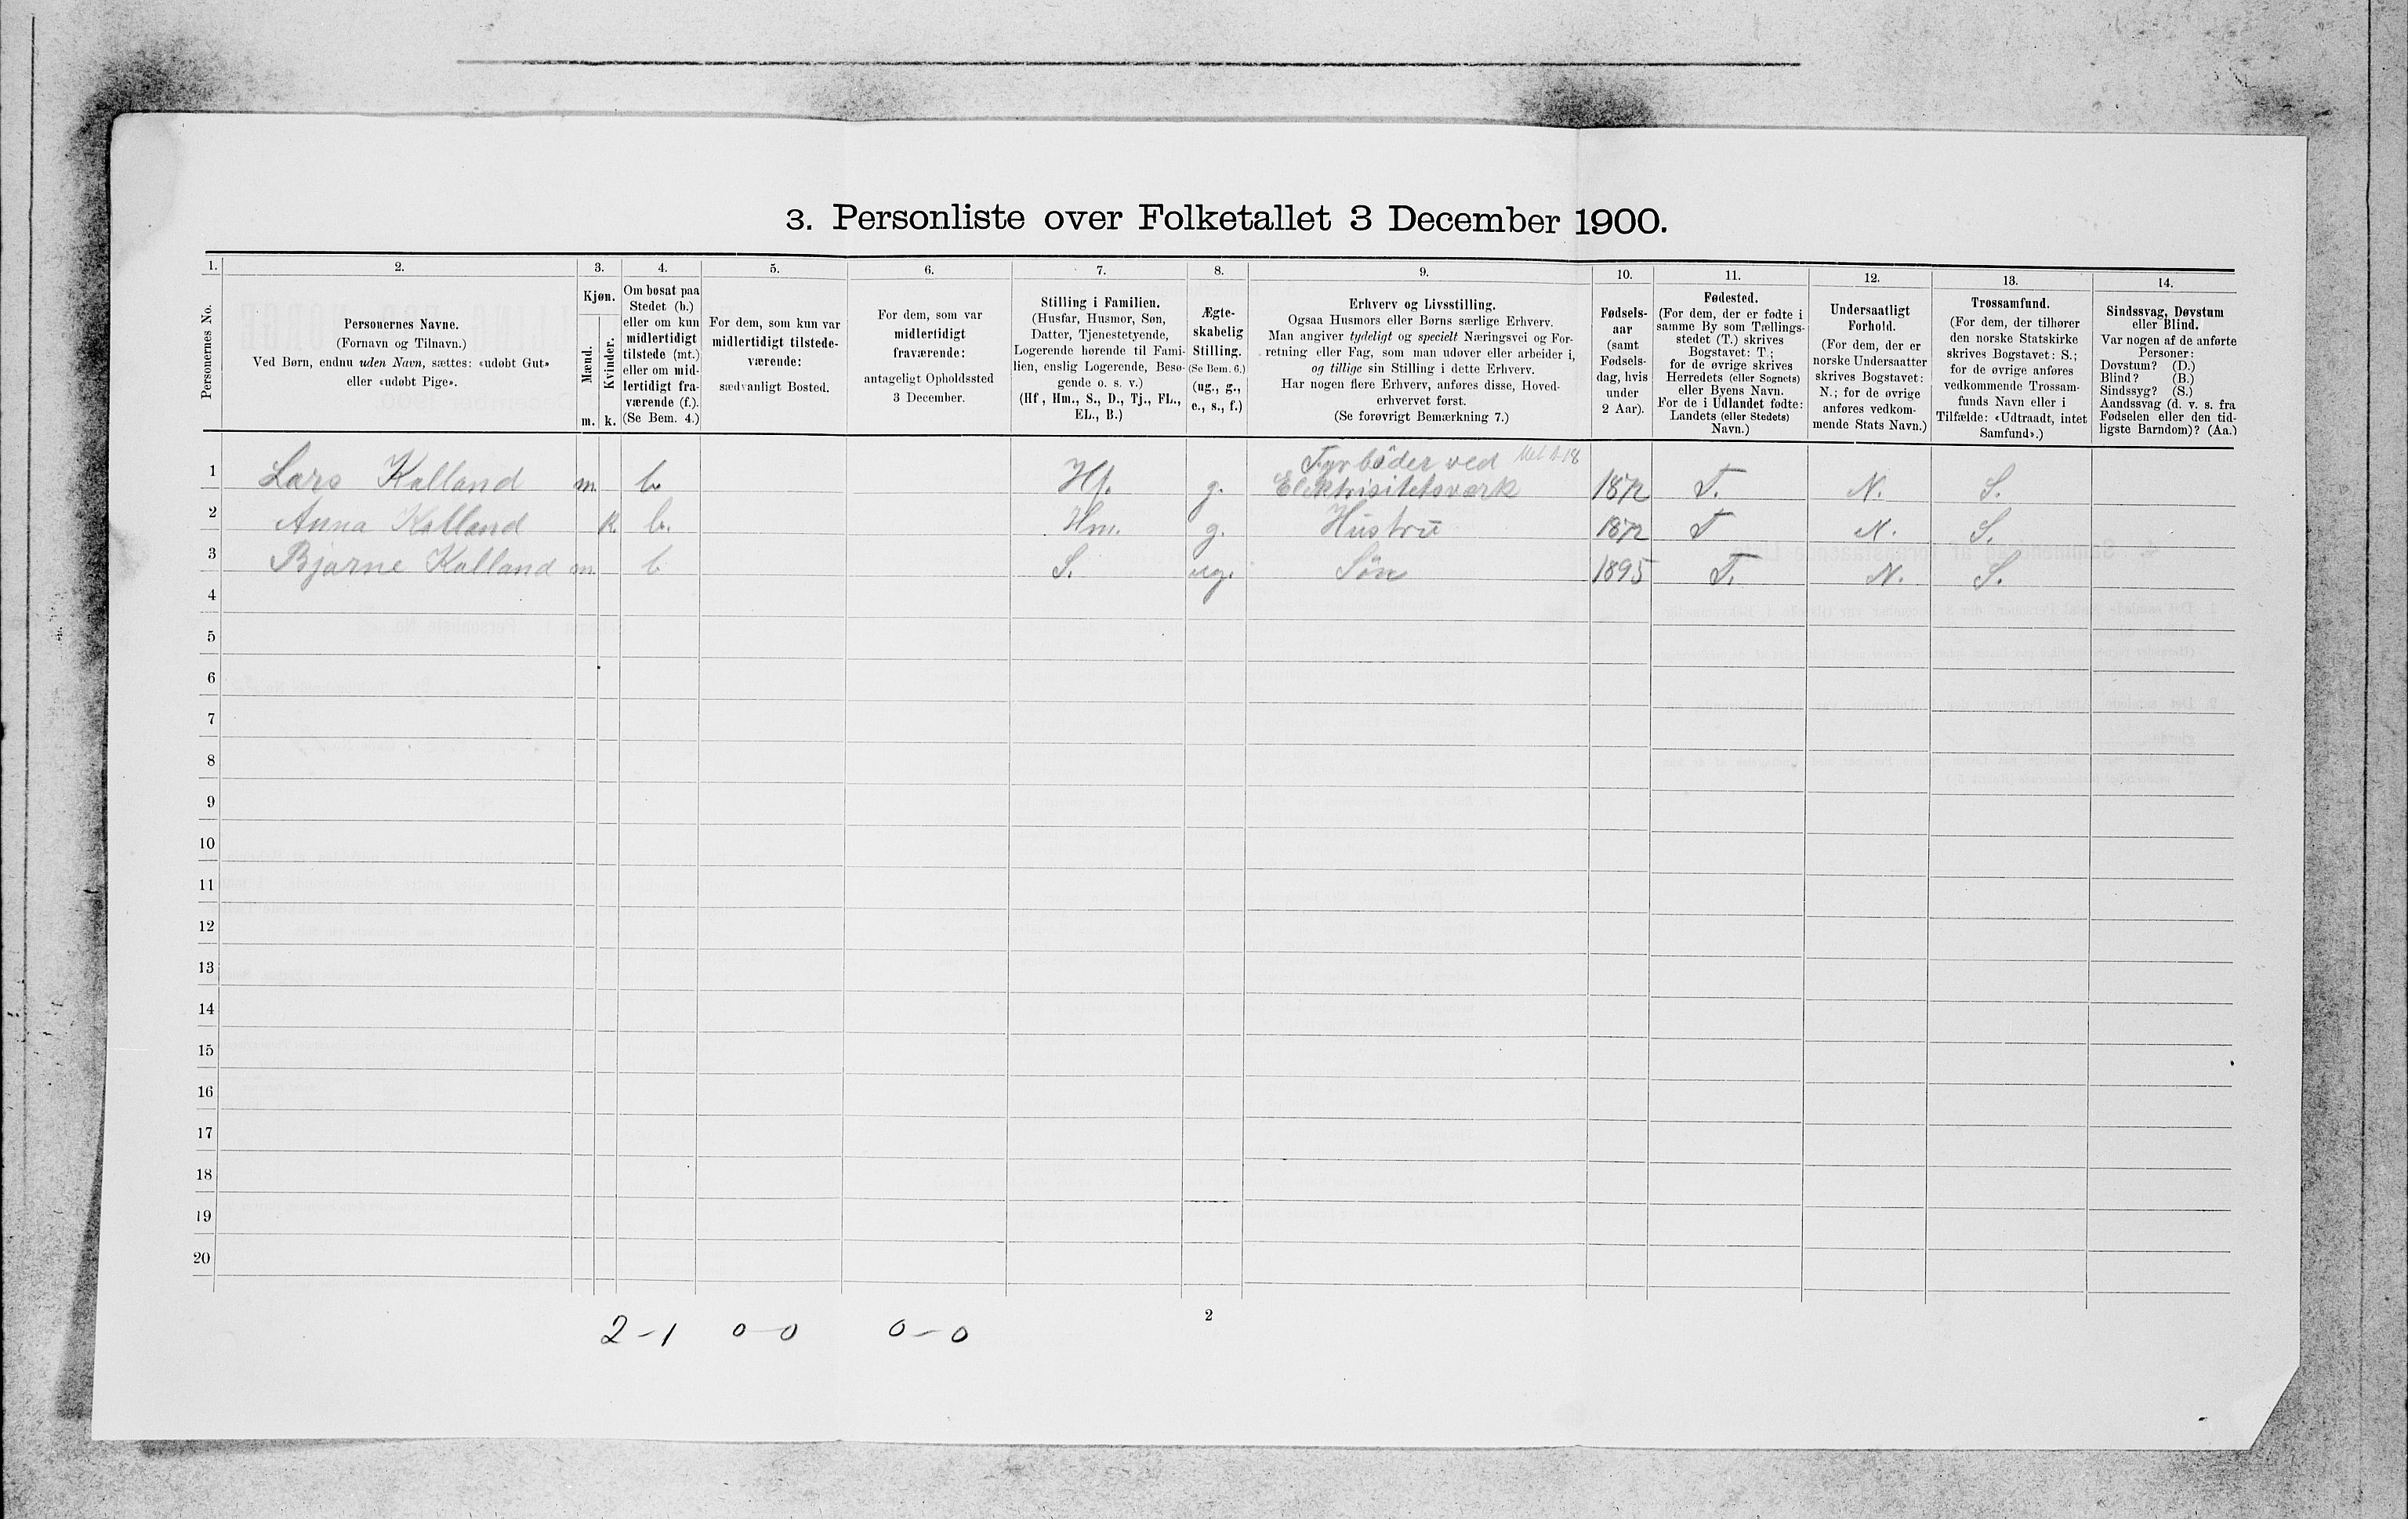 3. Personliste over Folketallet 3 December 1900.
1. 2. 3. 4. 5. 6. 7. 8. 9. 10. 11. 12. 13. 14.
Personernes No.
Personernes Navne.
(Fornavn og Tilnavn.)
Ved Børn, endnu uden Navn, sættes: «udøbt Gut»
eller «udøbt Pige».
Kjøn.
Mænd.
Kvinder.
m. k.
Om bosat paa
Stedet (b.)
eller om kun
midlertidigt
tilstede (mt.)
eller om mid-
lertidigt fra-
værende (f.).
(Se Bem. 4.)
For dem, som kun var
midlertidigt tilstede-
værende:
sædvanligt Bosted.
For dem, som var
midlertidigt
fraværende:
antageligt Opholdssted
3 December.
Stilling i Familien.
(Husfar, Husmor, Søn,
Datter, Tjenestetyende,
Logerende hørende til Fami-
lien, enslig Logerende, Besø-
gende o. s. v.)
(Hf., Hm., S., D., Tj., FL.,
EL., B.)
Ægte-
skabelig
Stilling.
(Se Bem. 6.)
(ug., g.,
e., s., f.)
Erhverv og Livsstilling.
Ogsaa Husmors eller Børns særlige Erhverv.
Man angiver tydeligt og specielt Næringsvei og For-
retning eller Fag, som man udøver eller arbeider i,
og tillige sin Stilling i dette Erhverv.
Har nogen flere Erhverv, anføres disse, Hoved-
erhvervet først.
(Se forøvrigt Bemærkning 7.)
Fødsels-
aar
(samt
Fødsels-
dag, hvis
under
2 Aar).
Fødested.
(For dem, der er fødte i
samme By som Tællings-
stedet (T.) skrives
Bogstavet: T.;
for de øvrige skrives
Herredets (eller Sognets)
eller Byens Navn.
For de i Udlandet fødte:
Landets (eller Stedets)
Navn.)
Undersaatligt
Forhold.
(For dem, der er
norske Undersaatter
skrives Bogstavet:
N.; for de øvrige
anføres vedkom-
mende Stats Navn.)
Trossamfund.
(For dem, der tilhører
den norske Statskirke
skrives Bogstavet: S.;
for de øvrige anføres
vedkommende Trossam-
funds Navn eller i
Tilfælde: «Udtraadt, intet
Samfund».)
Sindssvag, Døvstum
eller Blind.
Var nogen af de anførte
Personer:
Døvstum? (D.)
Blind? (B.)
Sindssyg? (S.)
Aandssvag (d. v. s. fra
Fødselen eller den tid-
ligste Barndom)? (Aa.)
Fyrböder ved
1 Lars Kalland m. b. Hf. g. Elektrisitetsværk 1872 T. N. S.
2 Anna Kalland k. b. Hm. g. Hustru 1872 T N. S.
3 Bjarne Kalland m b S. ug. Sön 1895 T. N. S.
4
5
6
7
8
9
10
11
12
13
14
15
16
17
18
19
20
2
2-1 0-0 0-0